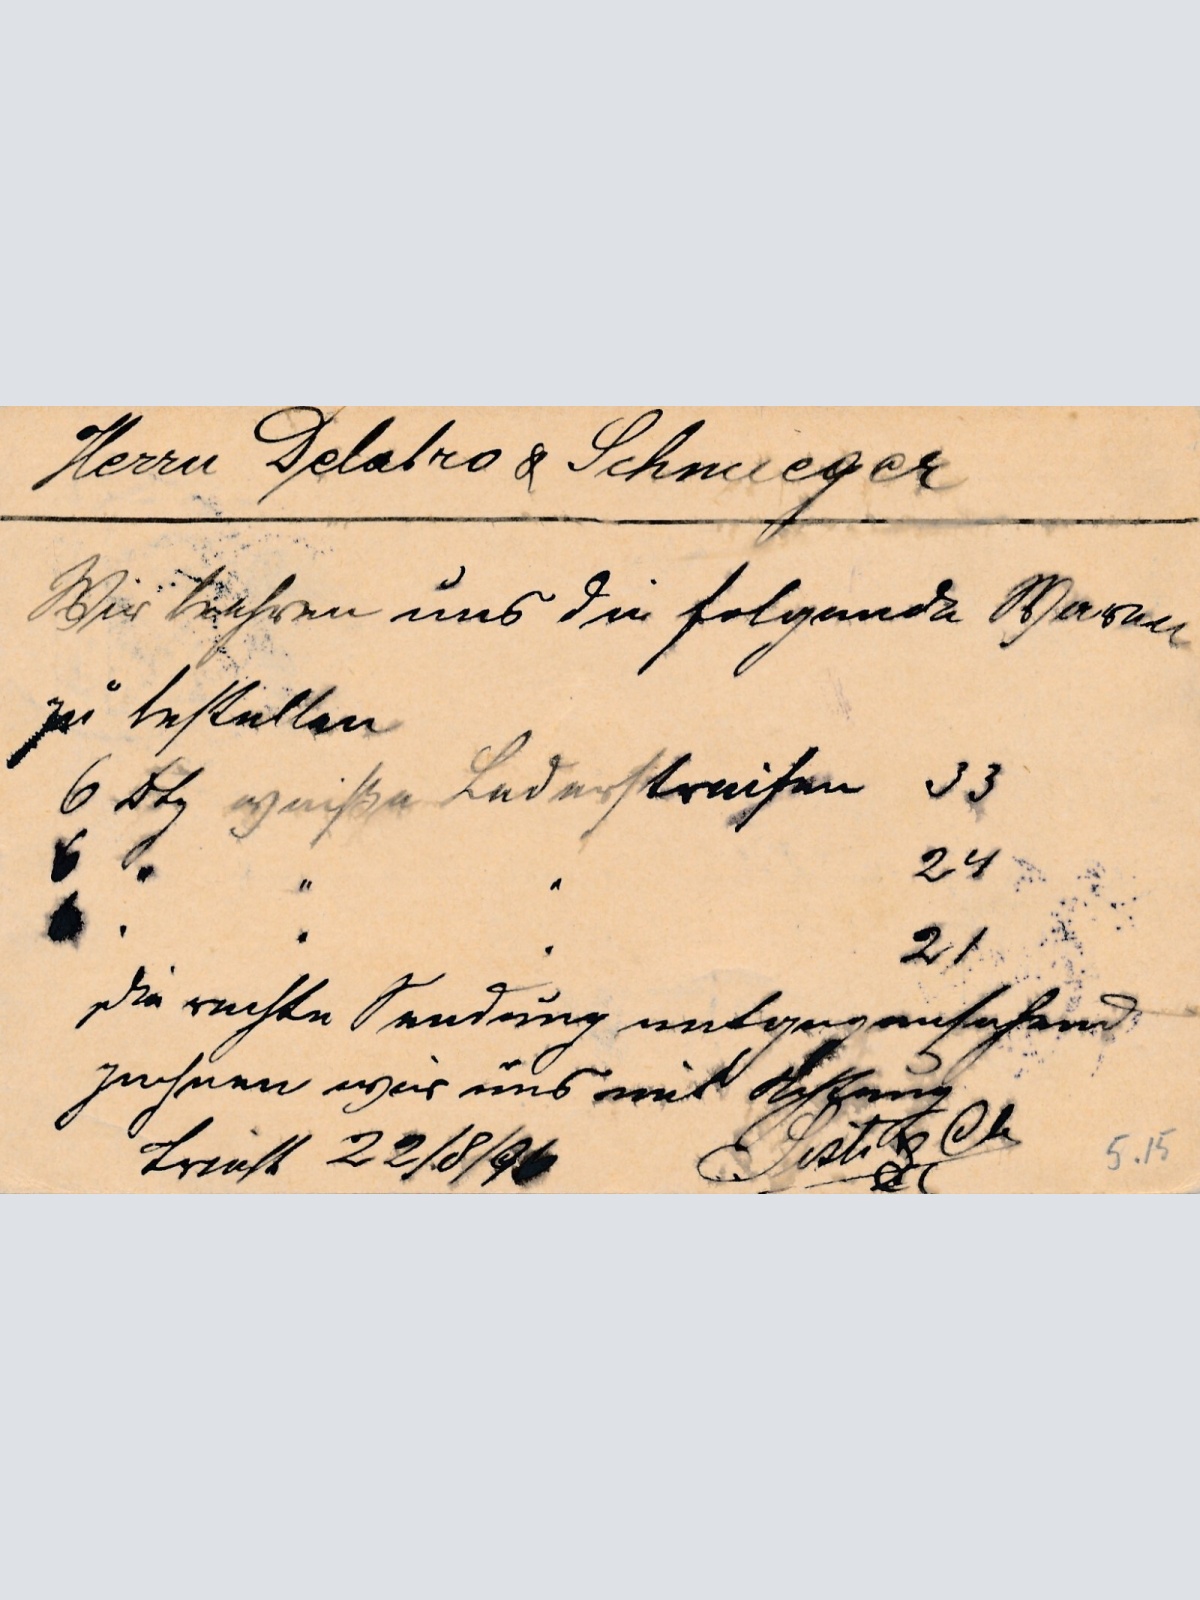 Herrn Delabro & Schmueger
Wir beehren uns die folgende Waren
zu bestellen
6 Dtz weiße Lederstreifen 33
6 " " " 24
6 " " " 21
Die rechte Sendung entgegensehend
zeichnen wir uns mit Achtung
Triest 22/8/96
5.15